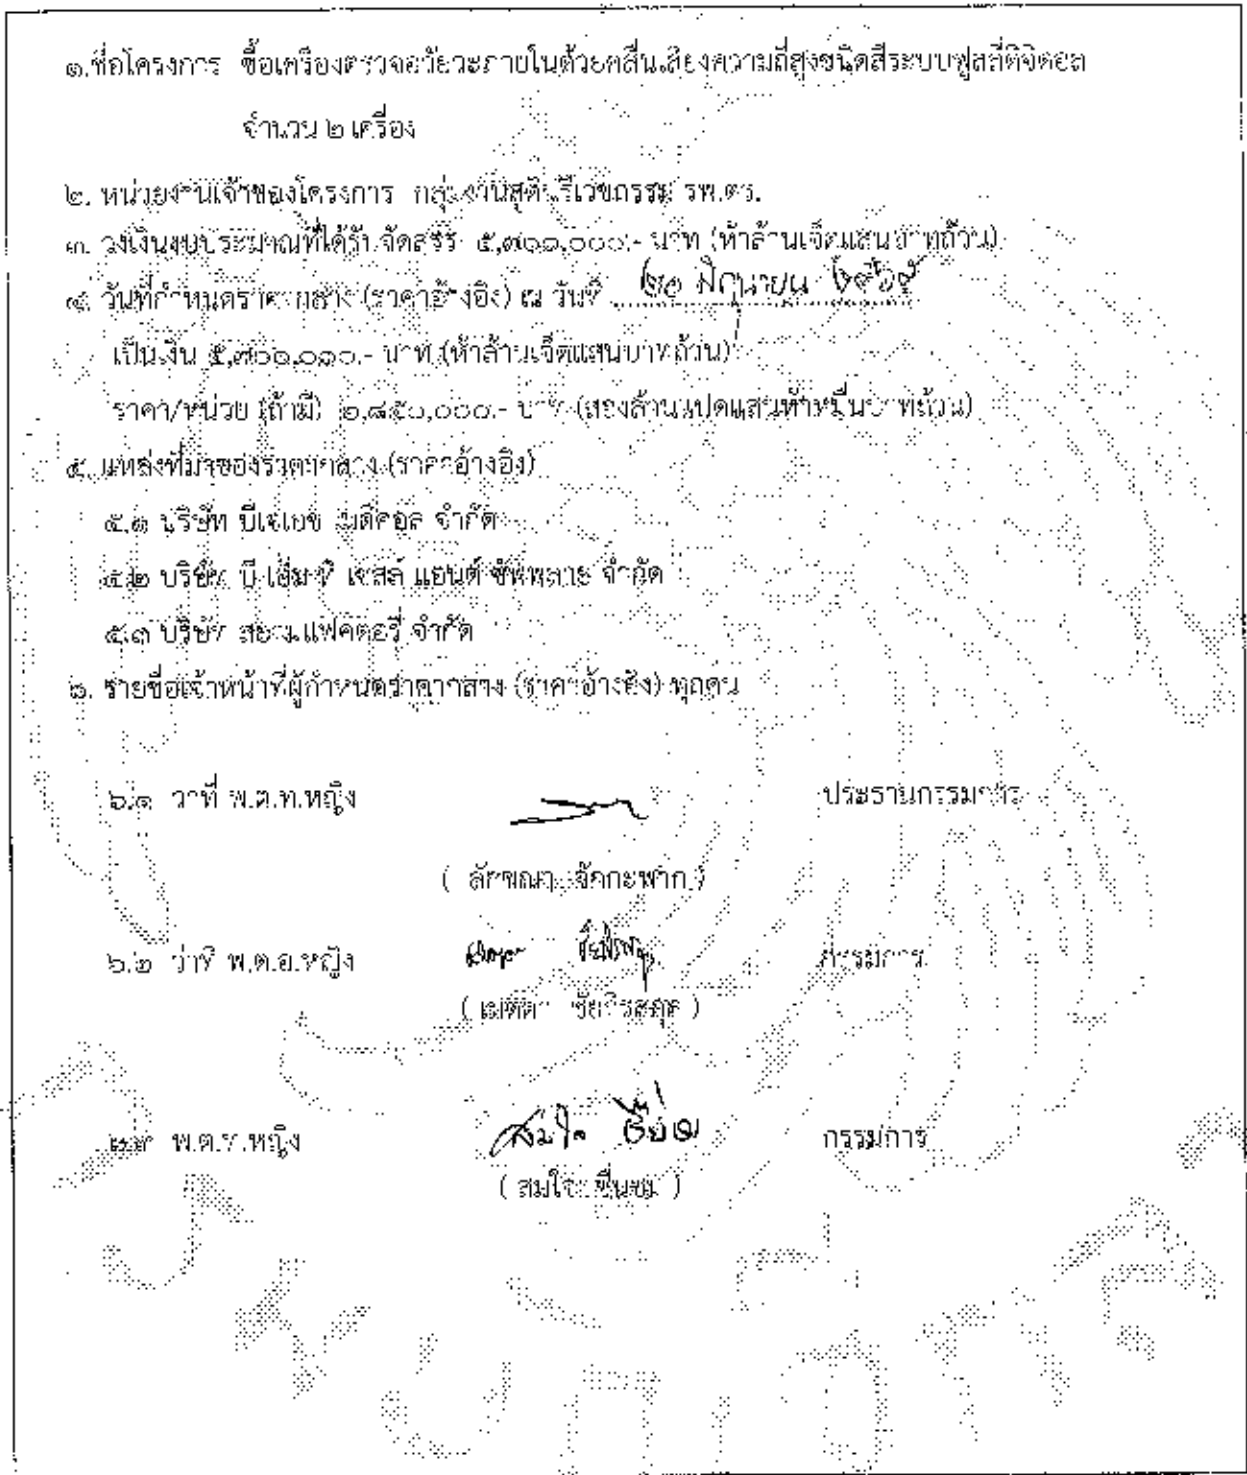 ๑.ชื่อโครงการ ซื้อเครื่องตรวจอวัยวะภายในด้วยคลื่นเสียงความถี่สูงชนิดสีระบบฟูลลี่ดิจิตอล
จำนวน ๒ เครื่อง
๒. หน่วยงานเจ้าของโครงการ กลุ่มงานสูตินรีเวชกรรม รพ.ตร.
๓. วงเงินงบประมาณที่ได้รับจัดสรร ๕,๗๐๐,๐๐๐.- บาท (ห้าล้านเจ็ดแสนบาทถ้วน)
๔. วันที่กำหนดราคากลาง (ราคาอ้างอิง) ณ วันที่ มิถุนายน
เป็นเงิน ๕,๗๐๐,๐๐๐.- บาท (ห้าล้านเจ็ดแสนบาทถ้วน)
ราคา/หน่วย (ถ้ามี) ๒,๘๕๐,๐๐๐.- บาท (สองล้านแปดแสนห้าหมื่นบาทถ้วน)
๕. แหล่งที่มาของราคากลาง (ราคาอ้างอิง)
๕.๑ บริษัท บีเจเอช เมดิคอล จำกัด
๕.๒ บริษัท บี เอ็ม ที เซลส์ แอนด์ ซัพพลาย จำกัด
๕.๓ บริษัท แฟคตอรี่ จำกัด
๖. รายชื่อเจ้าหน้าที่ผู้กำหนดราคากลาง (ราคาอ้างอิง) ทุกคน
๖.๑ ว่าที่ พ.ต.ท.หญิง ประธานกรรมการ
( ลักขณา จักกะพาก )
๖.๒ ว่าที่ พ.ต.อ.หญิง กรรมการ
( เมตตา )
๖.๓ พ.ต.ท.หญิง สมใจ กรรมการ
( สมใจ ชื่นชม )